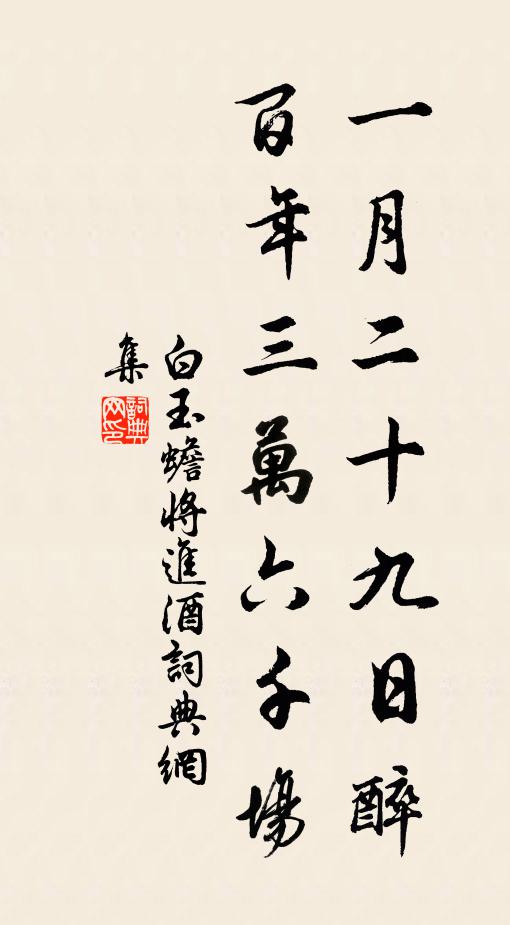 一月二十九日醉
百年三萬六千場
白玉蟾將進酒詞典網
集
詞典網印